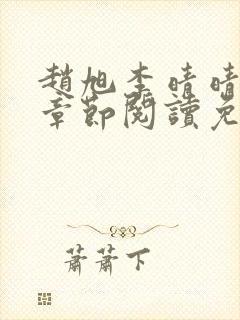 趙旭李晴晴
章節閱讀免
蕭蕭下